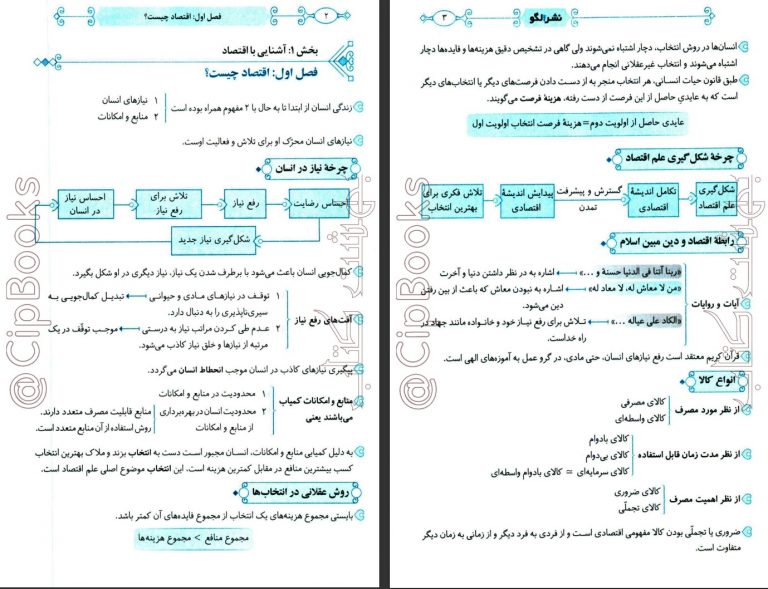 ۲
فصل اول: اقتصاد چیست؟
بخش ۱: آشنایی با اقتصاد
فصل اول: اقتصاد چیست؟
زندگی انسان از ابتدا تا به حال با ۲ مفهوم همراه بوده است
۱ نیازهای انسان
۲ منابع و امکانات
نیازهای انسان محرّک او برای تلاش و فعالیت اوست.
چرخهٔ نیاز در انسان
احساس نیاز در انسان
تلاش برای رفع نیاز
رفع نیاز
احساس رضایت
شکل‌گیری نیاز جدید
کمال‌جویی انسان باعث می‌شود با برطرف شدن یک نیاز، نیاز دیگری در او شکل بگیرد.
آفت‌های رفع نیاز
۱ توقف در نیازهای مادی و حیوانی ← تبدیل کمال‌جویی به
سیری‌ناپذیری را به دنبال دارد.
۲ عدم طی کردن مراتب نیاز به درستی ← موجب توقّف در یک
مرتبه از نیازها و خلق نیاز کاذب می‌شود.
پیگیری نیازهای کاذب در انسان موجب انحطاط انسان می‌گردد.
منابع و امکانات کمیاب
می‌باشند یعنی
۱ محدودیت در منابع و امکانات
۲ محدودیت انسان در بهره‌برداری
از منابع و امکانات
منابع قابلیت مصرف متعدد دارند.
روش استفاده از آن منابع متعدد است.
به دلیل کمیابی منابع و امکانات، انسان مجبور است دست به انتخاب بزند و ملاک بهترین انتخاب
کسب بیشترین منافع در مقابل کمترین هزینه است. این انتخاب موضوع اصلی علم اقتصاد است.
روش عقلانی در انتخاب‌ها
بایستی مجموع هزینه‌های یک انتخاب از مجموع فایده‌های آن کمتر باشد.
مجموع منافع > مجموع هزینه‌ها
@CipBooks
نشر الگو
۳
انسان‌ها در روش انتخاب، دچار اشتباه نمی‌شوند ولی گاهی در تشخیص دقیق هزینه‌ها و فایده‌ها دچار
اشتباه می‌شوند و انتخاب غیرعقلانی انجام می‌دهند.
طبق قانون حیات انسانی، هر انتخاب منجر به از دست دادن فرصت‌های دیگر یا انتخاب‌های دیگر
است که به عایدیِ حاصل از این فرصت از دست رفته، هزینهٔ فرصت می‌گویند.
عایدی حاصل از اولویت دوم=هزینهٔ فرصت انتخاب اولویت اول
چرخهٔ شکل‌گیری علم اقتصاد
تلاش فکری برای بهترین انتخاب
پیدایش اندیشهٔ اقتصادی
گسترش و پیشرفت تمدن
تکامل اندیشهٔ اقتصادی
شکل‌گیری علم اقتصاد
رابطهٔ اقتصاد و دین مبین اسلام
آیات و روایات
«ربنا آتنا فی الدنیا حسنة و ...» ← اشاره به در نظر داشتن دنیا و آخرت
«من لا معاش له، لا معاد له» ← اشاره به نبودن معاش که باعث از بین رفتن
دین می‌شود.
«الکاد علی عیاله ...» ← تلاش برای رفع نیاز خود و خانواده مانند جهاد در
راه خداست.
قرآن کریم معتقد است رفع نیازهای انسان، حتی مادی، در گرو عمل به آموزه‌های الهی است.
انواع کالا
از نظر مورد مصرف
کالای مصرفی
کالای واسطه‌ای
از نظر مدت زمان قابل استفاده
کالای بادوام
کالای بی‌دوام
کالای سرمایه‌ای ≃ کالای بادوام واسطه‌ای
از نظر اهمیت مصرف
کالای ضروری
کالای تجمّلی
ضروری یا تجمّلی بودن کالا مفهومی اقتصادی است و از فردی به فرد دیگر و از زمانی به زمان دیگر
متفاوت است.
@CipBooks